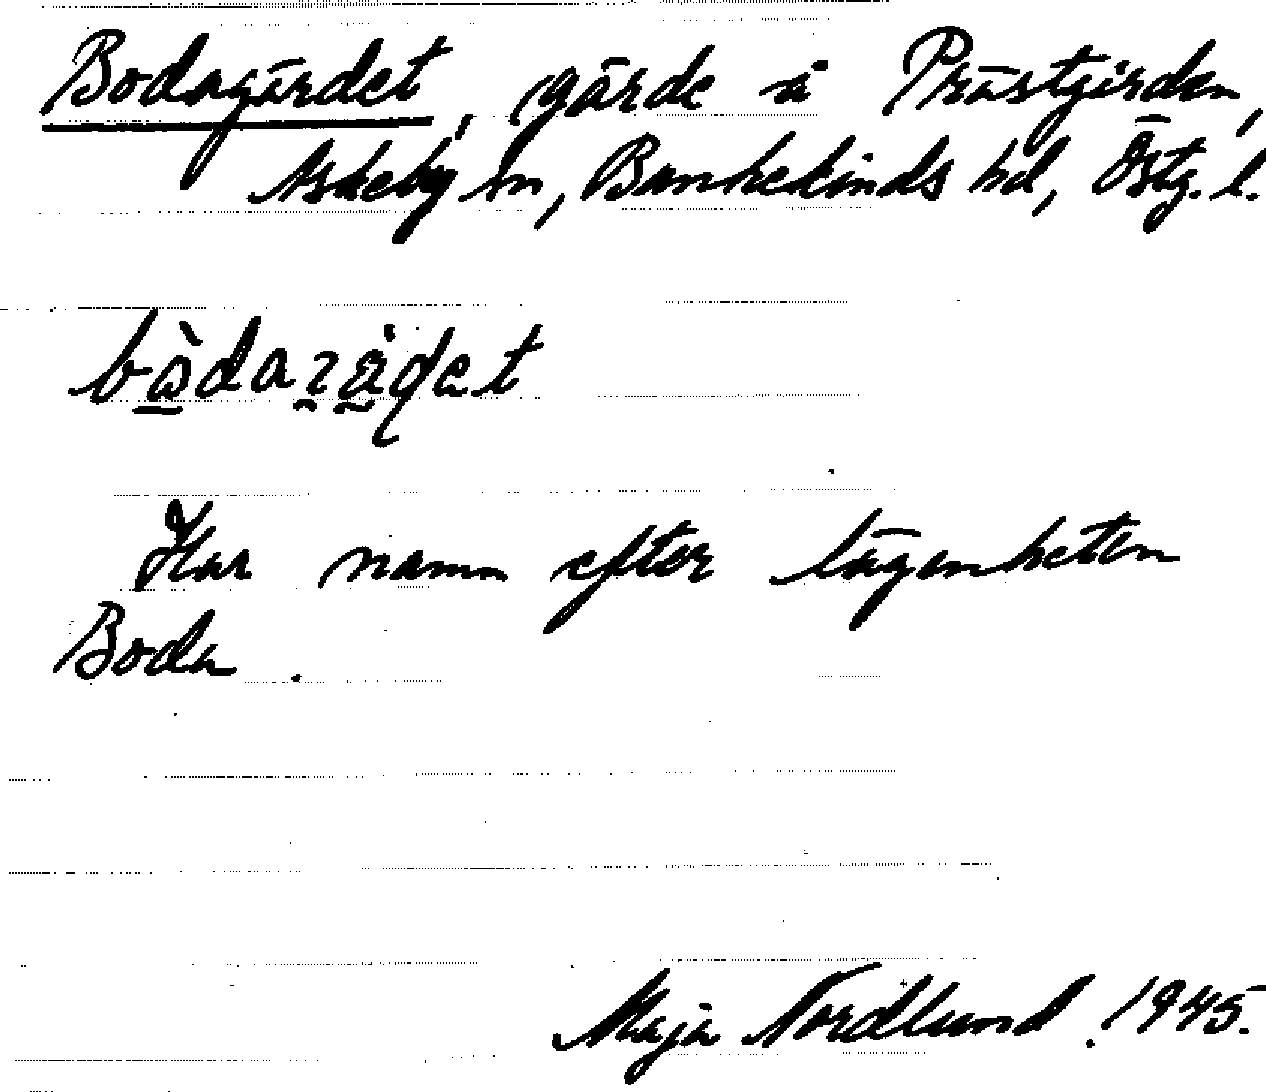 Bodagärdet, gärde i Prästgården,
Askeby sn, Bankekinds hd, Östg. l.
Har namn efter lägenheten
Boda.
Maja Nordlund. 1945.